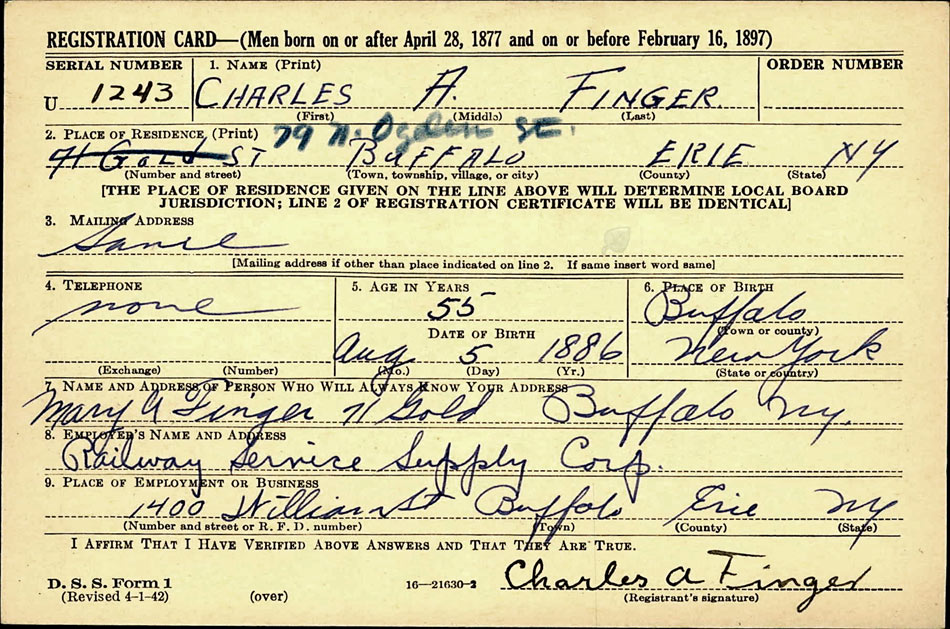 REGISTRATION CARD—(Men born on or after April 28, 1877 and on or before February 16, 1897)
SERIAL NUMBER 1. NAME (Print) ORDER NUMBER
U 1243 CHARLES A. FINGER
(First) (Middle) (Last)
2. PLACE OF RESIDENCE (Print) 79 N. Ogden St.
71 GOLD ST BUFFALO ERIE NY
(Number and street) (Town, township, village, or city) (County) (State)
[THE PLACE OF RESIDENCE GIVEN ON THE LINE ABOVE WILL DETERMINE LOCAL BOARD
JURISDICTION; LINE 2 OF REGISTRATION CERTIFICATE WILL BE IDENTICAL]
3. MAILING ADDRESS
Same
[Mailing address if other than place indicated on line 2. If same insert word same]
4. TELEPHONE 5. AGE IN YEARS 6. PLACE OF BIRTH
none 55 Buffalo
DATE OF BIRTH (Town or county)
Aug 5 1886 New York
(Exchange) (Number) (Mo.) (Day) (Yr.) (State or country)
7. NAME AND ADDRESS OF PERSON WHO WILL ALWAYS KNOW YOUR ADDRESS
Mary A Finger 71 Gold Buffalo Ny.
8. EMPLOYER'S NAME AND ADDRESS
Railway Service Supply Corp.
9. PLACE OF EMPLOYMENT OR BUSINESS
1400 William St Buffalo Erie Ny
(Number and street or R. F. D. number) (Town) (County) (State)
I AFFIRM THAT I HAVE VERIFIED ABOVE ANSWERS AND THAT THEY ARE TRUE.
D. S. S. Form 1 16—21630-2 Charles A Finger
(Revised 4-1-42) (over) (Registrant's signature)